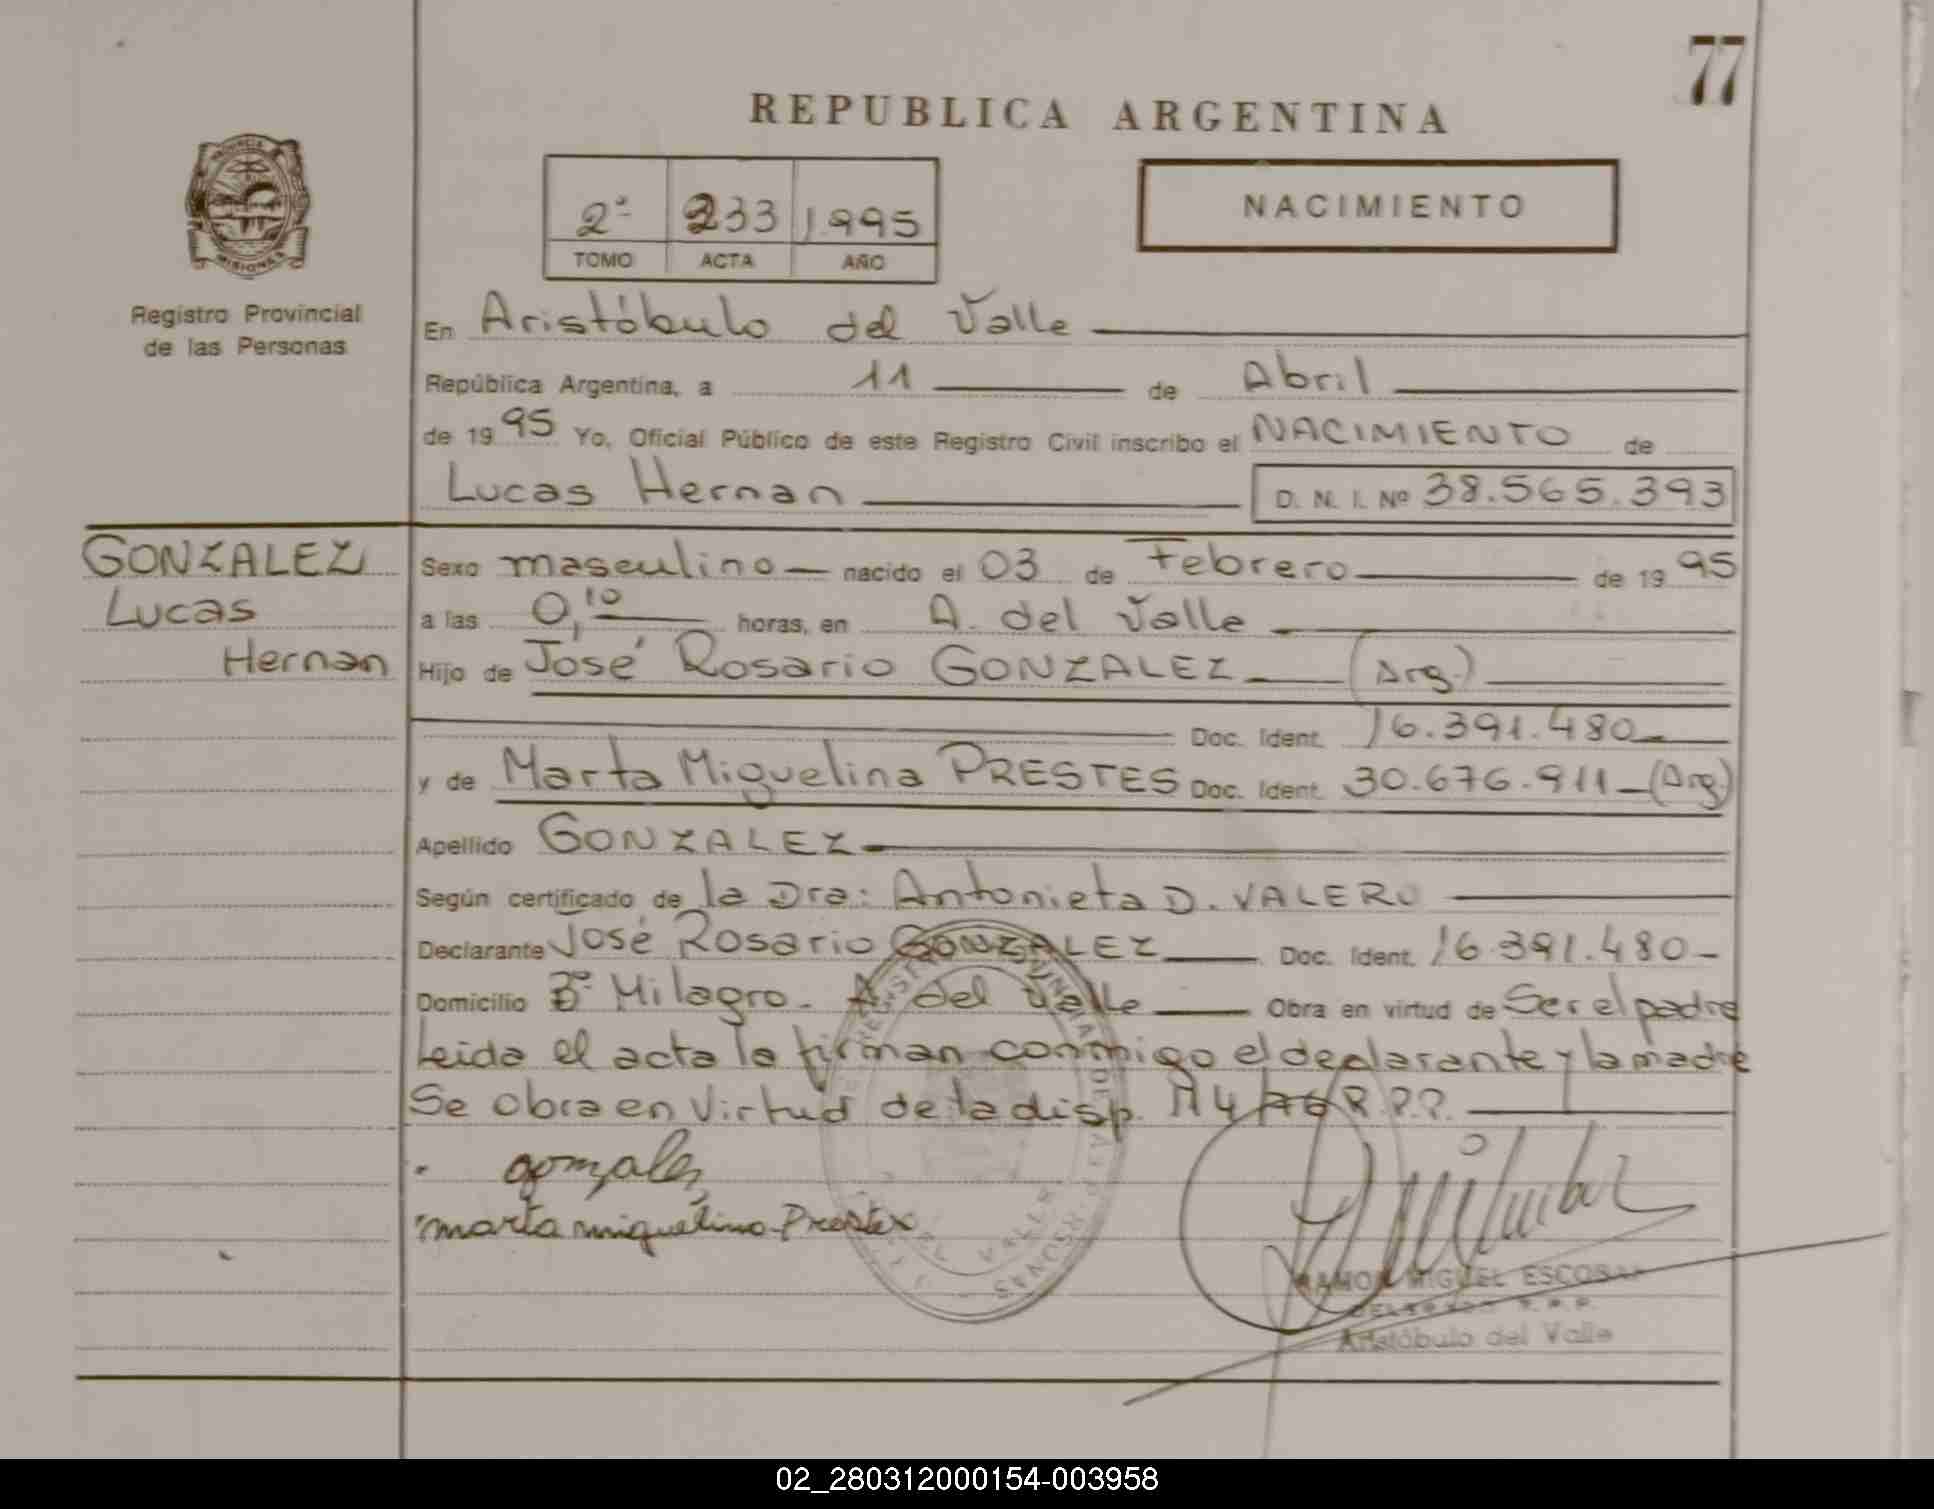 77
REPUBLICA ARGENTINA
PROVINCIA
MISIONES
Registro Provincial
de las Personas
2º 233 1.995
TOMO ACTA AÑO
NACIMIENTO
En Aristóbulo del Valle
República Argentina, a 11 de Abril
de 1995 Yo, Oficial Público de este Registro Civil inscribo el NACIMIENTO de
Lucas Hernan D. N. I. Nº 38.565.393
GONZALEZ
Lucas
Hernan
Sexo masculino nacido el 03 de Febrero de 1995
a las 0,10 horas, en A. del Valle
Hijo de José Rosario GONZALEZ (Arg.)
Doc. Ident. 16.391.480
y de Marta Miguelina PRESTES Doc. Ident. 30.676.911 (Arg.)
Apellido GONZALEZ
Según certificado de la Dra: Antonieta D. VALERO
Declarante José Rosario GONZALEZ Doc. Ident. 16.391.480
Domicilio Bº Milagro. A. del Valle Obra en virtud de Ser el padre
Leida el acta la firman conmigo el declarante y la madre
Se obra en virtud de la disp. R.P.P.
gonzalez
marta miguelina Prestes
RAMON MIGUEL ESCOBAR
R.P.P.
Aristóbulo del Valle
02_280312000154-003958